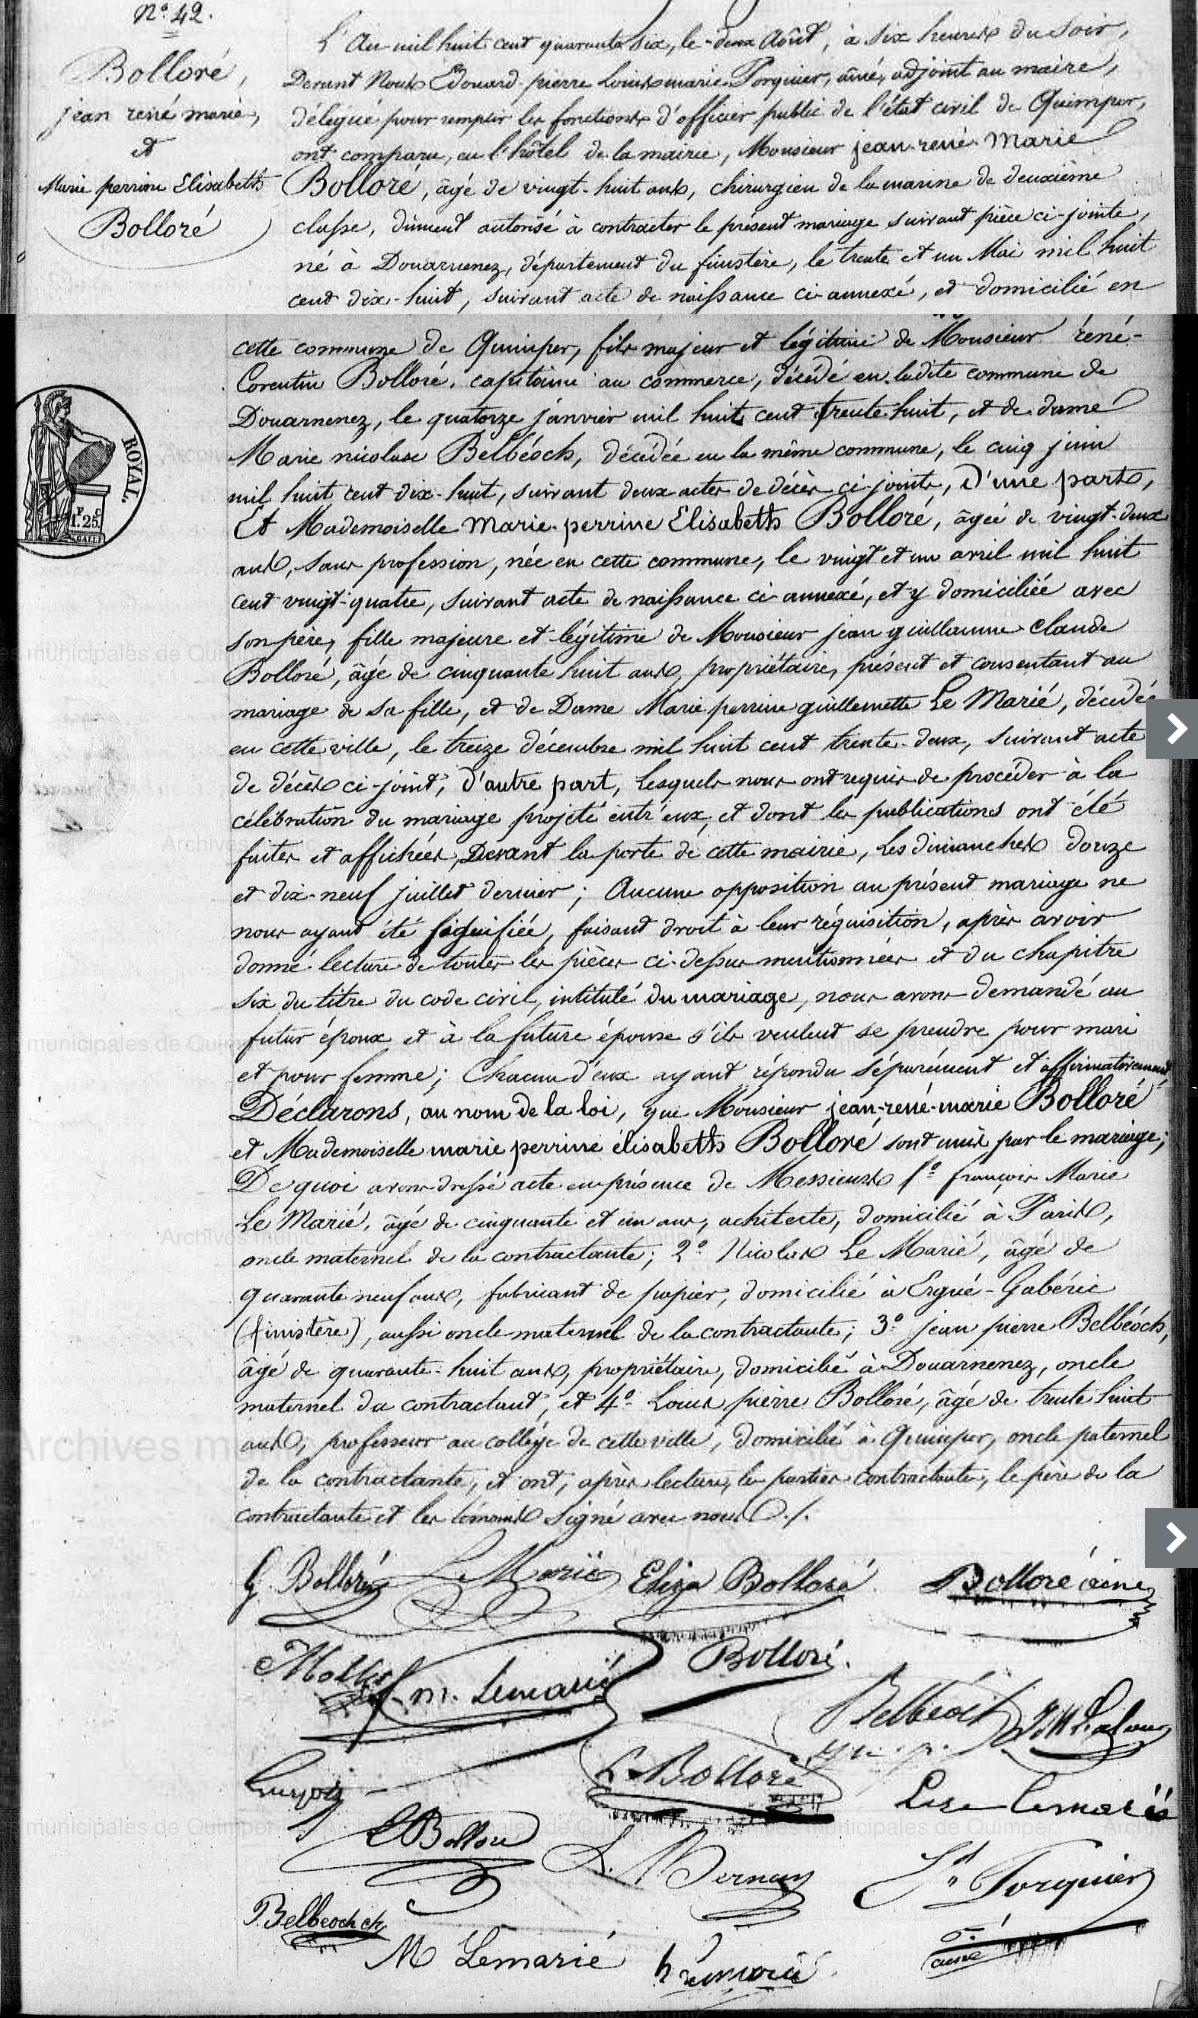 N.o 42.
Bolloré,
jean rené marie,
et
Marie perrine Elisabeth
Bolloré
L'An mil huit cent quarante six, le deux Août, à six heures du Soir,
Devant Nous Edouard-pierre Louis marie Porquier, aîné, adjoint au maire,
délégué pour remplir les fonctions d'officier public de l'état civil de Quimper,
ont comparu, en l'hôtel de la mairie, Monsieur jean-rené-Marie
Bolloré, âgé de vingt-huit ans, chirurgien de la marine de deuxième
classe, dûment autorisé à contracter le présent mariage suivant pièce ci-jointe,
né à Douarnenez, département du finistère, le trente et un Mai mil huit
cent dix-huit, suivant acte de naissance ci-annexé, et domicilié en
cette commune de Quimper, fils majeur et légitime de Monsieur rené-
Corentin Bolloré, capitaine au commerce, décédé en ladite commune de
Douarnenez, le quatorze janvier mil huit cent trente huit, et de dame
Marie nicolase Belbéoch, décédée en la même commune, le cinq juin
mil huit cent dix-huit, suivant deux actes de décès ci-joints, D'une part,
Et Mademoiselle Marie-perrine Elisabeth Bolloré, âgée de vingt-deux
ans, sans profession, née en cette commune, le vingt et un avril mil huit
cent vingt-quatre, suivant acte de naissance ci-annexé, et y domiciliée avec
son père, fille majeure et légitime de Monsieur jean guillaume claude
Bolloré, âgé de cinquante huit ans, propriétaire, présent et consentant au
mariage de sa fille, et de Dame Marie perrine guillemette Le Marié, décédée
en cette ville, le treize décembre mil huit cent trente-deux, suivant acte
de décès ci-joint, d'autre part, Lesquels nous ont requis de procéder à la
célébration du mariage projeté entr'eux, et dont les publications ont été
faites et affichées, Devant la porte de cette mairie, les dimanches douze
et dix-neuf juillet dernier ; Aucune opposition au présent mariage ne
nous ayant été signifiée, faisant droit à leur réquisition, après avoir
donné lecture de toutes les pièces ci-dessus mentionnées et du chapitre
six du titre du code civil, intitulé du mariage, nous avons demandé au
futur époux et à la future épouse s'ils veulent se prendre pour mari
et pour femme ; Chacun d'eux ayant répondu séparément et affirmativement
Déclarons, au nom de la loi, que Monsieur jean-rené-marie Bolloré
et Mademoiselle marie perrine élisabeth Bolloré sont unis par le mariage ;
De quoi avons dressé acte en présence de Messieurs 1.o françois Marie
Le Marié, âgé de cinquante et un ans, architecte, domicilié à Paris,
oncle maternel de la contractante ; 2.o Nicolas Le Marié, âgé de
quarante neuf ans, fabricant de papier, domicilié à Ergué-Gabéric
(finistère), aussi oncle maternel de la contractante ; 3.o jean pierre Belbéoch,
âgé de quarante-huit ans, propriétaire, domicilié à Douarnenez, oncle
maternel du contractant, et 4.o Louis pierre Bolloré, âgé de trente huit
ans, professeur au collège de cette ville, domicilié à Quimper, oncle paternel
de la contractante, et ont, après lecture, les parties contractantes, le père de la
contractante et les témoins signé avec nous ./.
G. Bolloré Le Marié Eliza Bolloré Bolloré aîné
m. Lemarié Bolloré.
Belbeoch
L. Bolloré Lise Lemarié
Bolloré
Porquier
Belbeoch
aîné
M Lemarié
ROYAL.
1.25
Archives municipales de Quimper